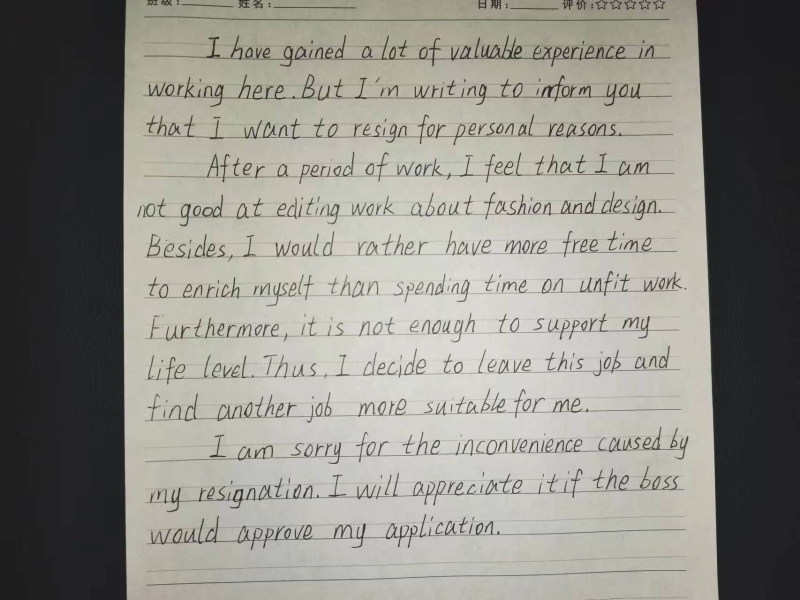 班级: 姓名: 日期: 评价:☆☆☆☆☆
I have gained a lot of valuable experience in
working here. But I'm writing to inform you
that I want to resign for personal reasons.
After a period of work, I feel that I am
not good at editing work about fashion and design.
Besides, I would rather have more free time
to enrich myself than spending time on unfit work.
Furthermore, it is not enough to support my
life level. Thus, I decide to leave this job and
find another job more suitable for me.
I am sorry for the inconvenience caused by
my resignation. I will appreciate it if the boss
would approve my application.